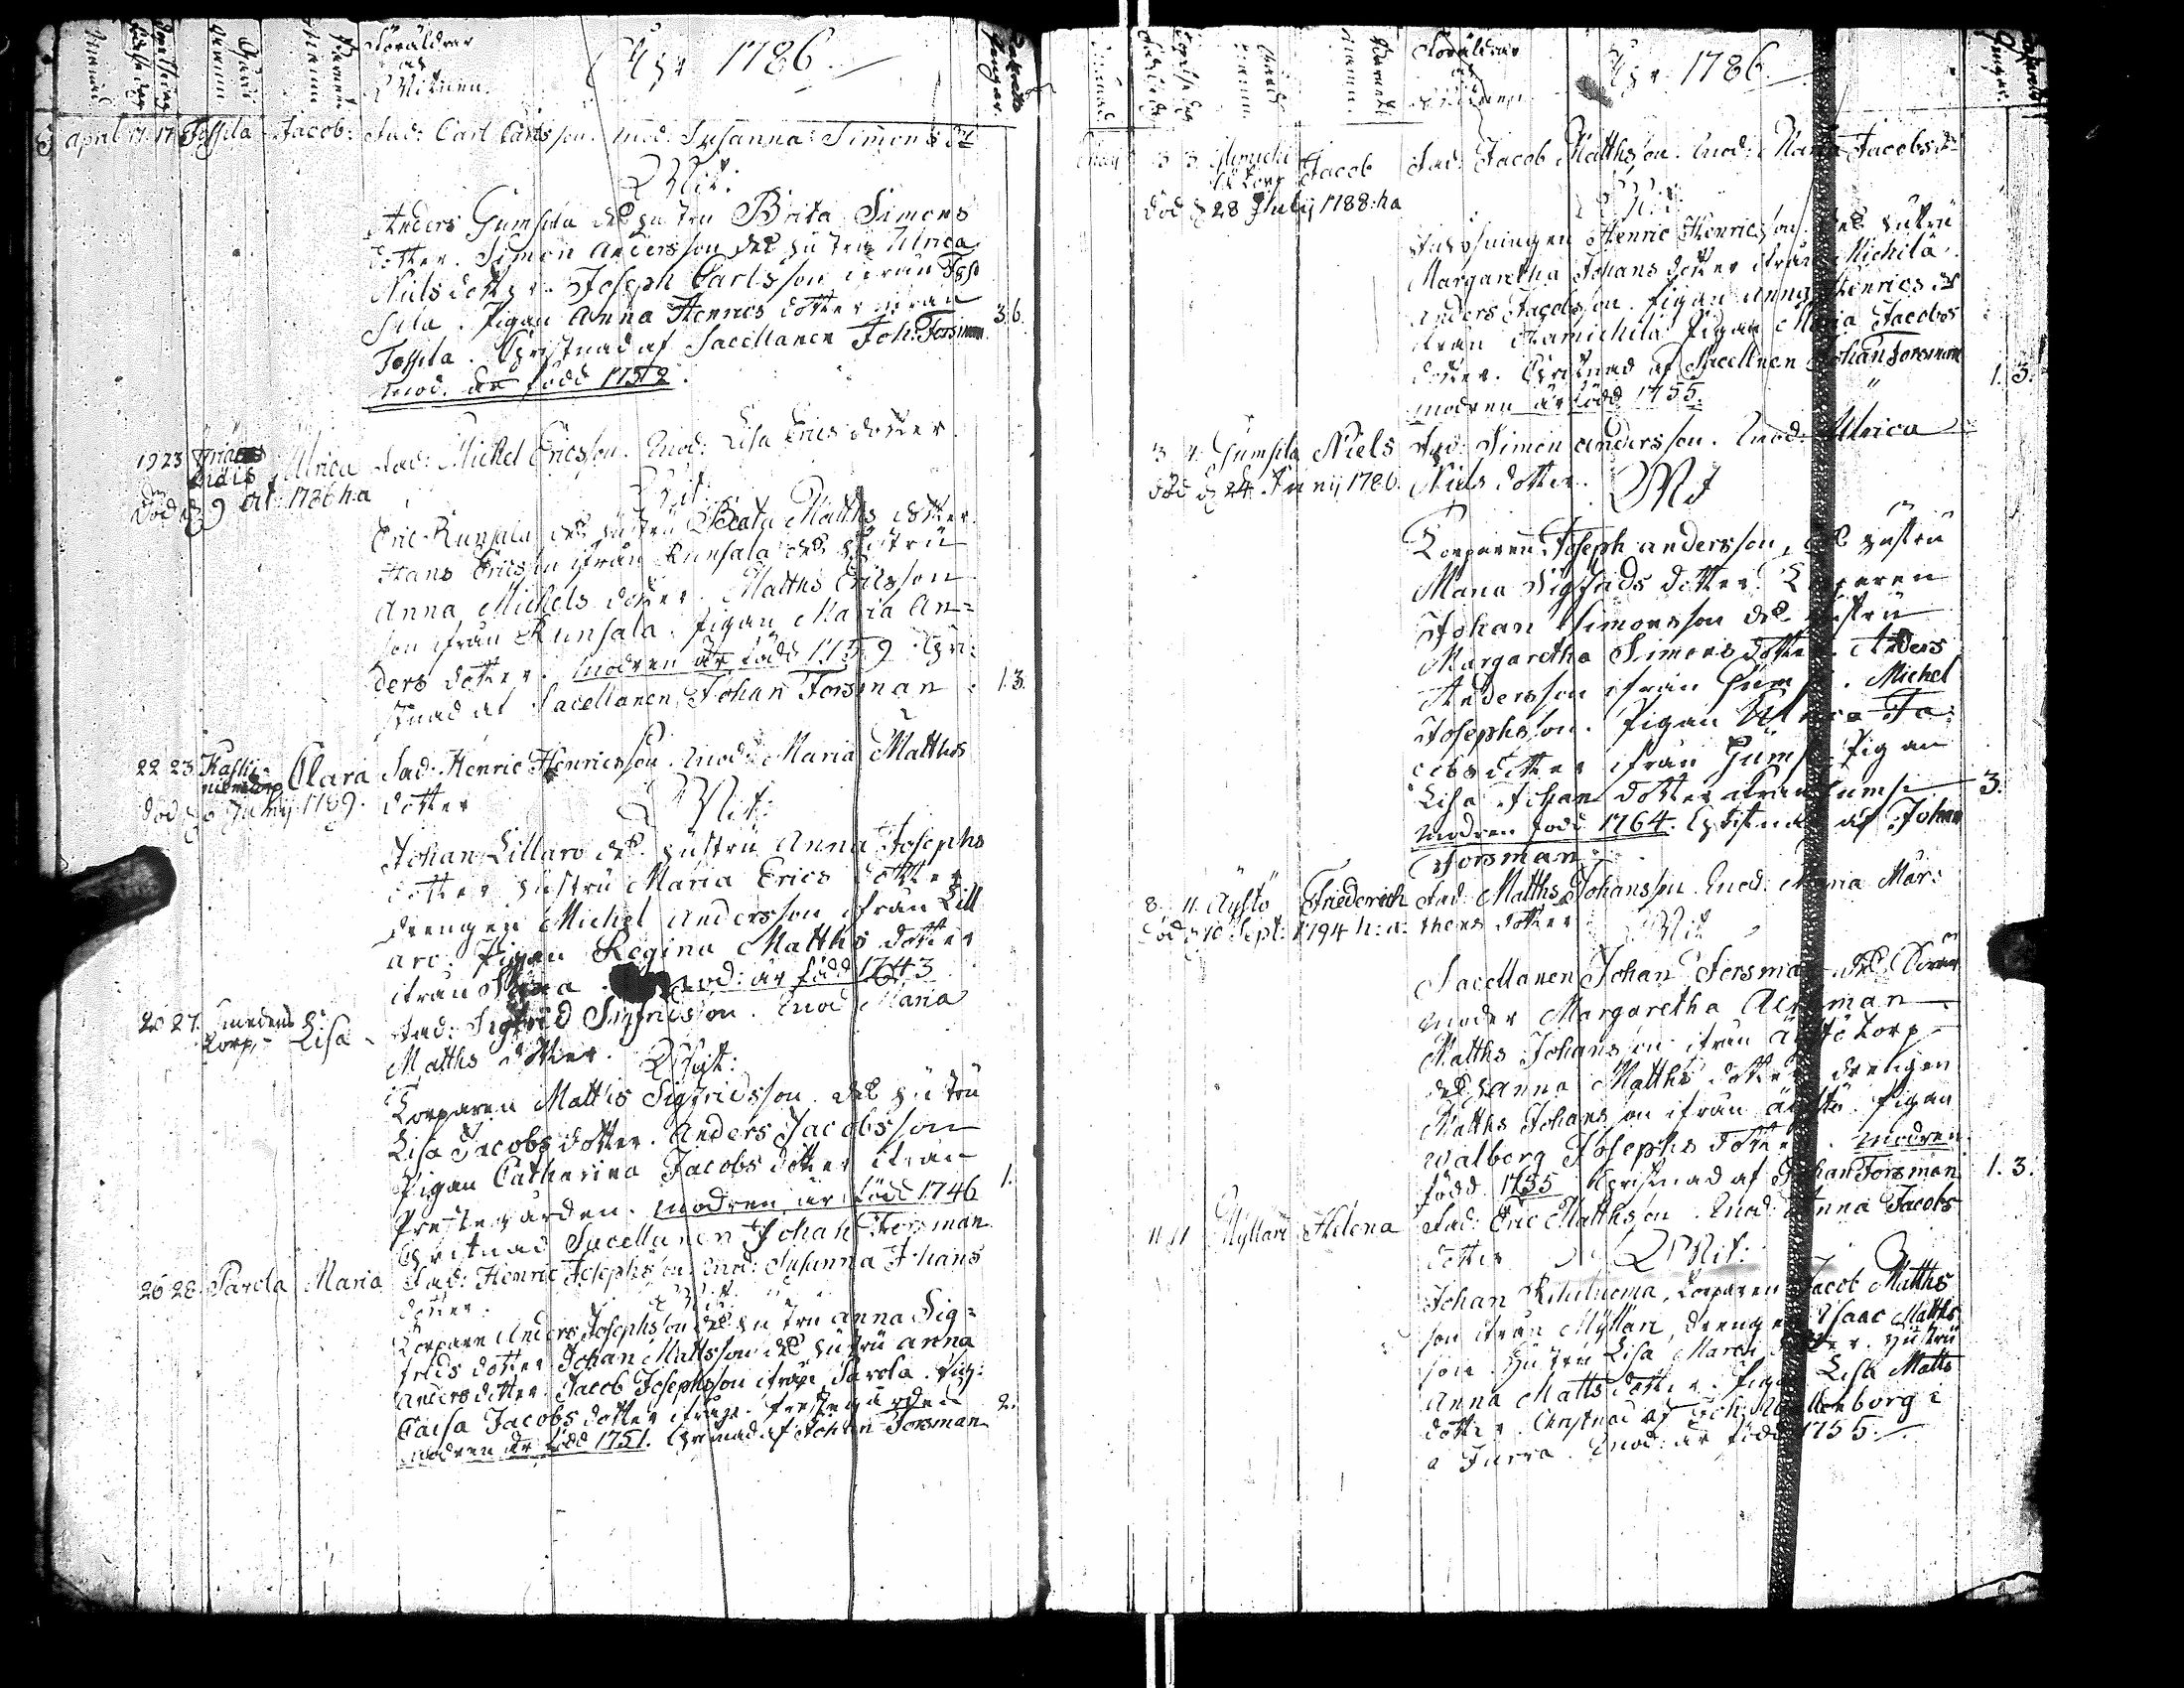 Månad
Födelse dag
Gård namn
Barnets namn
Föräldrar och Witnen.
Åhr 1786.
April 17. 17. Fossila Jacob. Fad: Carl Carlsson. Mod: Susanna Simons dr
Wit:
Anders Gumsila dess hustru Brita Simons
dotter. Simon Andersson dess hustru Ulrica
Nilsdotter. Joseph Carlsson ifrån Foss
sila. Pigan Anna Henrics dotter ifrån
Fossila. Christnad af Sacellanen Joh: Forsman. 3.6.
mod. är född 1752.
19 23 Ulrica Fad: Michel Ericsson. Mod: Lisa Erics dotter
död d 9 1786 h.a Wit:
Eric Runsala dess hustru Beata Matths dotter.
Hans Ericsson ifrån Runsala dess hustru
Anna Michels dotter. Matths Ericsson
son ifrån Runsala. Pigan Maria An=
ders dotter. modren är född 1759 Chri:
stnad af Sacellanen Johan Forsman. 1.3.
22 23 Clara Fad: Henric Henricsson. Mod: Maria Matths
död 1789. dotter Wit:
Johan Lillaro dess hustru Anna Josephs
dotter hustru Maria Erics dotter
drengen Michel Andersson ifrån Lill
aro. Pigan Regina Matths dotter
ifrån mod: är född 1743
26 27. Smedens Torp. Lisa Fad: Sigfrid Sigfridsson. Mod Maria
Matths dotter. Wit:
Torparen Matths Sigfridsson. dess hustru
Lisa Jacobs dotter. Anders Jacobsson
Pigan Catharina Jacobs dotter ifrån
Prestegården. modren är född 1746 1.
Christnad Sacellanen Johan Forsman.
26 28. Parola Maria Fad: Henric Josephsson. Mod: Susanna Johans
dotter. Wit:
Torparen Anders Josephsson dess hustru Anna Sig=
frids dotter. Johan Mattsson dess hustru Anna
Anders dotter. Jacob Josephsson ifrån Parola. Pig:
Caisa Jacobs dotter ifrån Prestegården 2.
modren är född 1751. Christnad af Johan Forsman
Föräldrar
Åhr 1786.
May 3 3 Torp Jacob Fad: Jacob Matthsson. Mod: Maria Jacobs dr
död d 28 July 1788. h.a Wit:
Henric Henricsson. dess hustru
Margaretha Johans dotter ifrån Michila.
Anders Jacobsson. Pigan Anna Henrics dr
ifrån Pigan Maria Jacobs
dotter. Christnad af Sacellnen Johan Forsman
modren är född 1755. 1. 3.
3 4 Gumsila Niels Fad: Simon Andersson. Mod: Ulrica
död d 24. Junij 1786. Niels dotter. Wit
Torparen Joseph Andersson, dess hustru
Maria Sigfrids dotter. Torparen
Johan Simonsson dess hustru
Margaretha Simons dotter. Anders
Andersson ifrån Michel
Josephsson. Pigan Ulrica Ja:
cobs dotter ifrån Pigan
Lisa Johans dotter ifrån 3.
modren född 1764. Christnad af Johan
Forsman.
8. 11. Äystö Friederich Fad: Matths Johansson. Mod: Maria Mår:
död d 10 Sept: 1794 h: a: thens dotter Wit
Sacellanen Johan Forsman dess
moder Margaretha
Matths Johansson ifrån Torp
dess Anna Matths dotter drengen
Matths Johansson ifrån äystö. Pigan
Walborg Josephs dotter. modren
född 1755 Christnad af Johan Forsman 1. 3.
11 11 Myllari Helena Fad: Eric Matthsson. Mod: Anna Jacobs
dotter Wit:
Johan Torparen Jacob Matths
son ifrån Myllari, drengen Isaac Matths
son. hustru Lisa dotter. hustru
Anna Matts dotter. Pigan Lisa Matts
dotter. Christnad af Joh:
Mod: är född 1755.